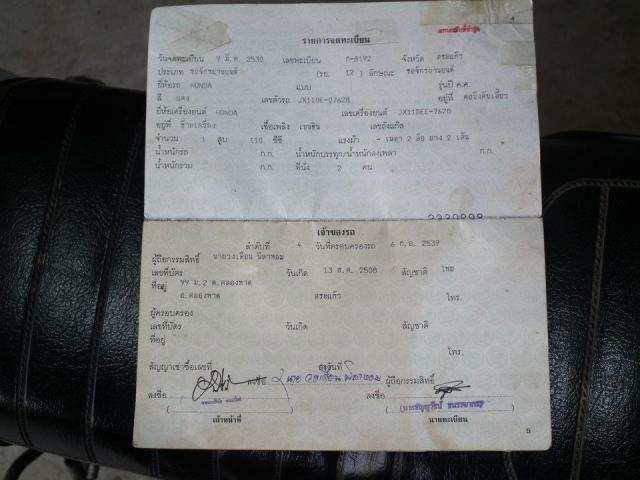 รายการจดทะเบียน
วันจดทะเบียน 9 มี.ค. 2530 เลขทะเบียน ก-8192 จังหวัด สระแก้ว
ประเภท รถจักรยานยนต์ (รย. 12 ) ลักษณะ รถจักรยานยนต์
ยี่ห้อรถ HONDA แบบ รุ่นปี ค.ศ.
สี แดง เลขตัวรถ JX110E-07628 อยู่ที่ คอบังคับเลี้ยว
ยี่ห้อเครื่องยนต์ HONDA เลขเครื่องยนต์ JX110EE-7628
อยู่ที่ ข้างเครื่อง เชื้อเพลิง เบนซิน เลขถังแก๊ส
จำนวน 1 สูบ 110 ซีซี แรงม้า - เพลา 2 ล้อ ยาง 2 เส้น
น้ำหนักรถ ก.ก. น้ำหนักบรรทุก/น้ำหนักลงเพลา ก.ก.
น้ำหนักรวม ก.ก. ที่นั่ง 2 คน
เจ้าของรถ
ลำดับที่ 4 วันที่ครอบครองรถ 6 2539
ผู้ถือกรรมสิทธิ์ นายวงเดือน นิลาหอม
เลขที่บัตร วันเกิด 13 ธ.ค. 2508 สัญชาติ ไทย
ที่อยู่ 99 ม.2 ต.คลองหาด
อ.คลองหาด สระแก้ว โทร.
ผู้ครอบครอง
เลขที่บัตร วันเกิด สัญชาติ
ที่อยู่
โทร.
สัญญาเช่าซื้อเลขที่ ลงวันที่
ลงชื่อ ผู้ถือกรรมสิทธิ์
ลงชื่อ ลงชื่อ
เจ้าหน้าที่ นายทะเบียน
5